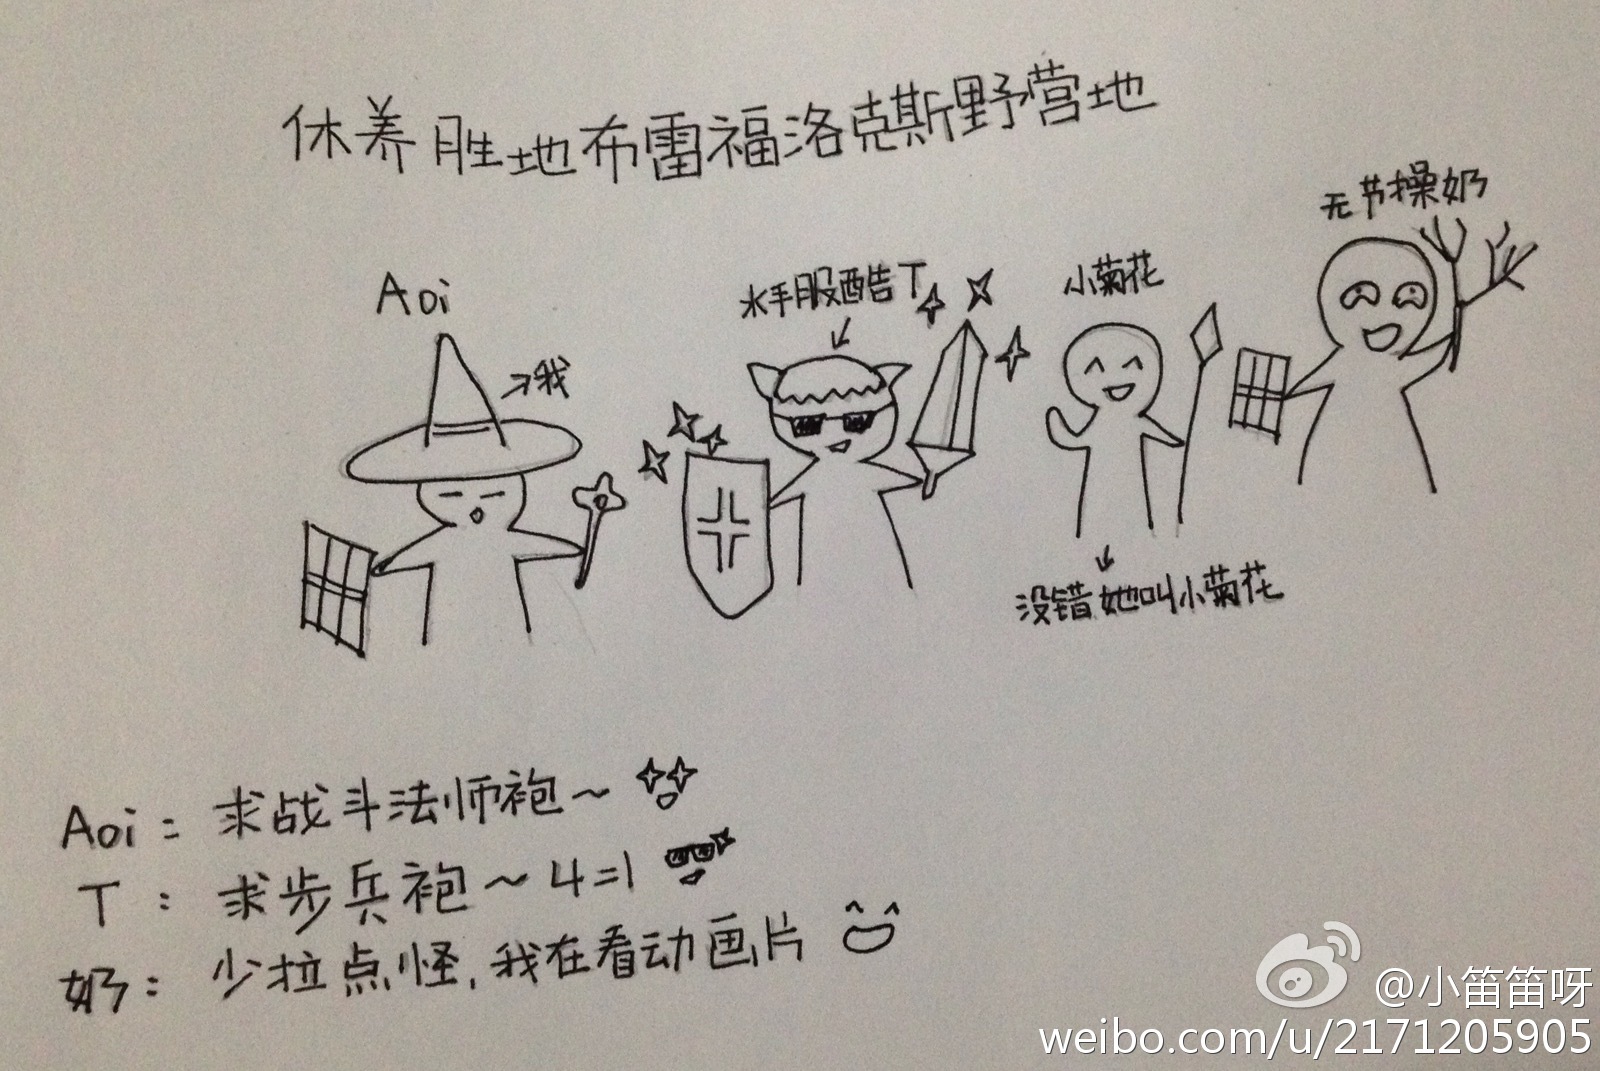 休养胜地布雷福洛克斯野营地
无节操奶
Aoi
水手服酷T
小菊花
我
没错她叫小菊花
Aoi：求战斗法师袍～
T：求步兵袍～4=1
奶：少拉点怪，我在看动画片
@小笛笛呀
weibo.com/u/2171205905